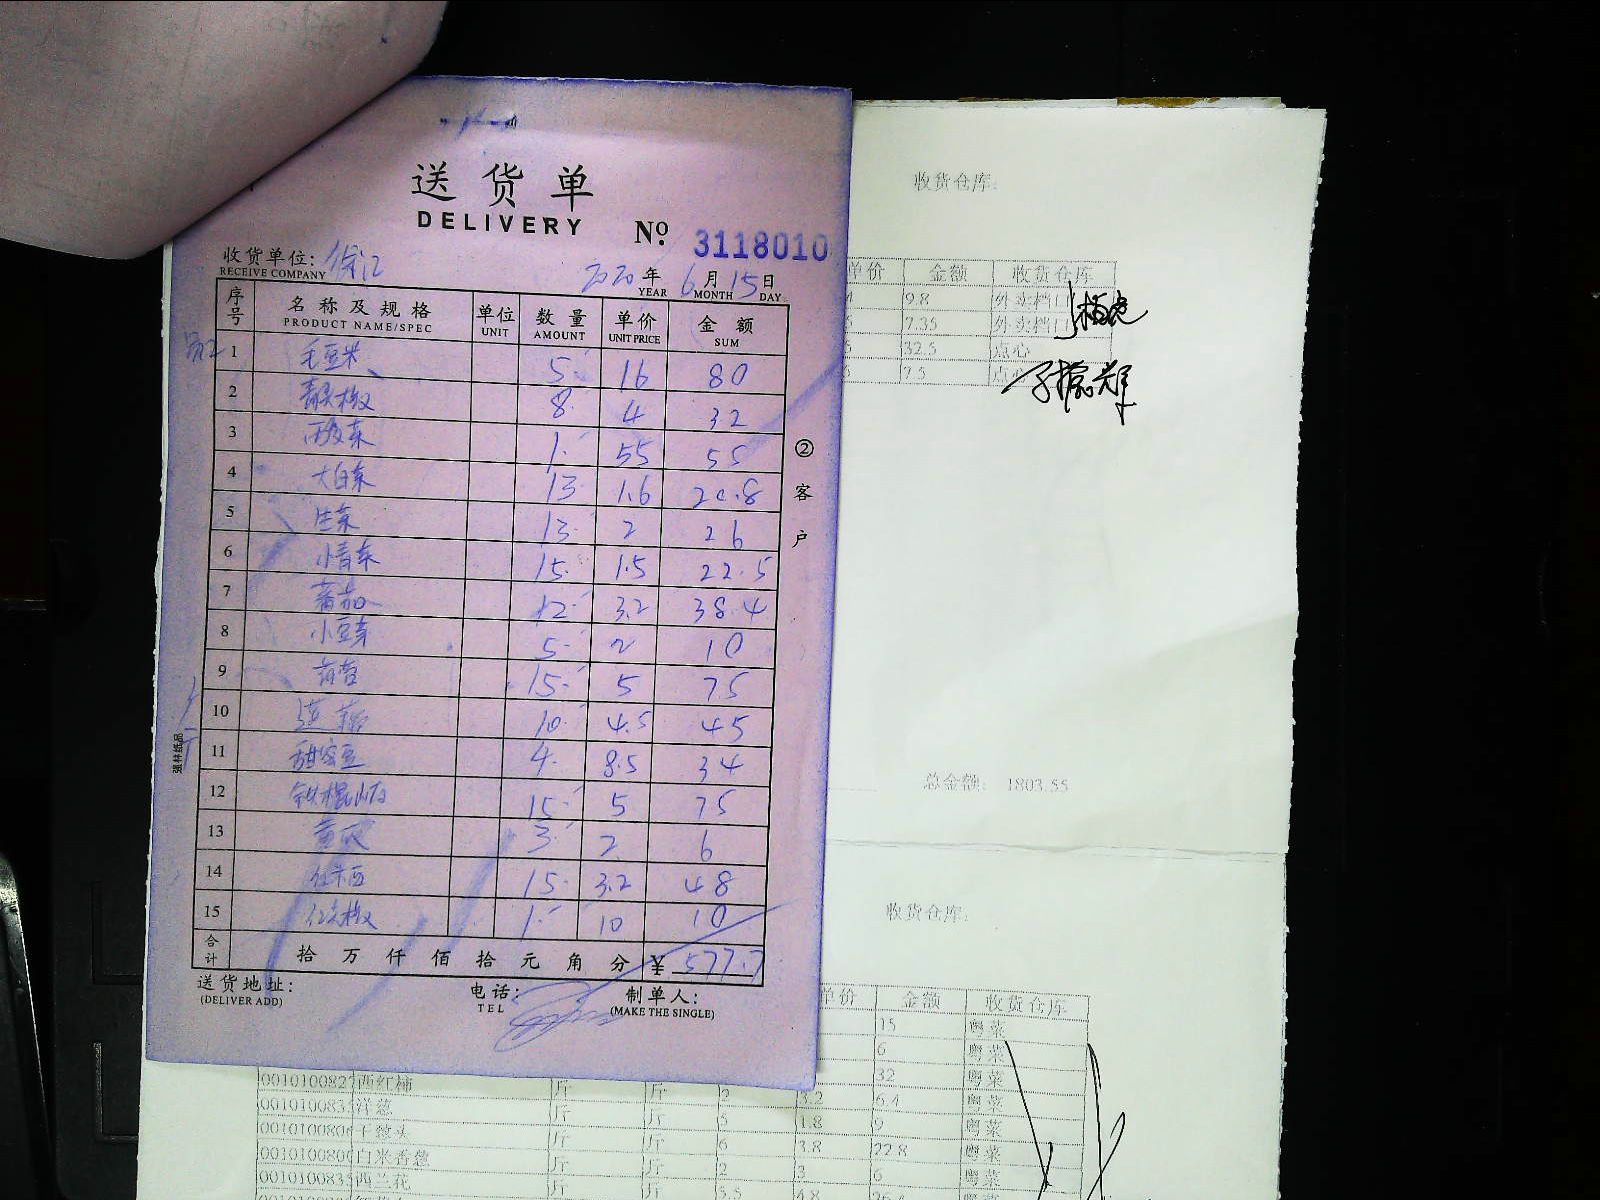 送货单
DELIVERY
No. 3118010
收货单位: 徐汇
RECEIVE COMPANY
2020年 6月 15日
YEAR MONTH DAY
序号 名称及规格 单位 数量 单价 金额
PRODUCT NAME/SPEC UNIT AMOUNT UNIT PRICE SUM
1 毛豆米 5 16 80
2 青尖椒 8 4 32
3 西芹 1 55 55
4 大白菜 13 1.6 20.8
5 生菜 13 2 26
6 小青菜 15 1.5 22.5
7 番茄 12 3.2 38.4
8 小豆芽 5 2 10
9 莴苣 15 5 75
10 莲藕 10 4.5 45
11 甜蜜豆 4 8.5 34
12 铁棍山药 15 5 75
13 黄瓜 3 2 6
14 15 3.2 48
15 红尖椒 1 10 10
合计 拾 万 仟 佰 拾 元 角 分 ¥ 577.7
送货地址:
(DELIVER ADD)
电话:
TEL
制单人:
(MAKE THE SINGLE)
②客户
强林纸品
收货仓库:
单价 金额 收货仓库
9.8 外卖档口
7.35 外卖档口
32.5 点心
7.5 点心
总金额: 1803.55
收货仓库:
单价 金额 收货仓库
15 粤菜
6 粤菜
32 粤菜
001010082 西红柿 斤 斤 2 3.2 6.4 粤菜
001010083 洋葱 斤 斤 5 1.8 9 粤菜
001010080 干葱头 斤 斤 6 3.8 22.8 粤菜
001010080 白米香葱 斤 斤 2 3 6 粤菜
001010083 西兰花 斤 斤 5.5 4.8 26.4 粤菜